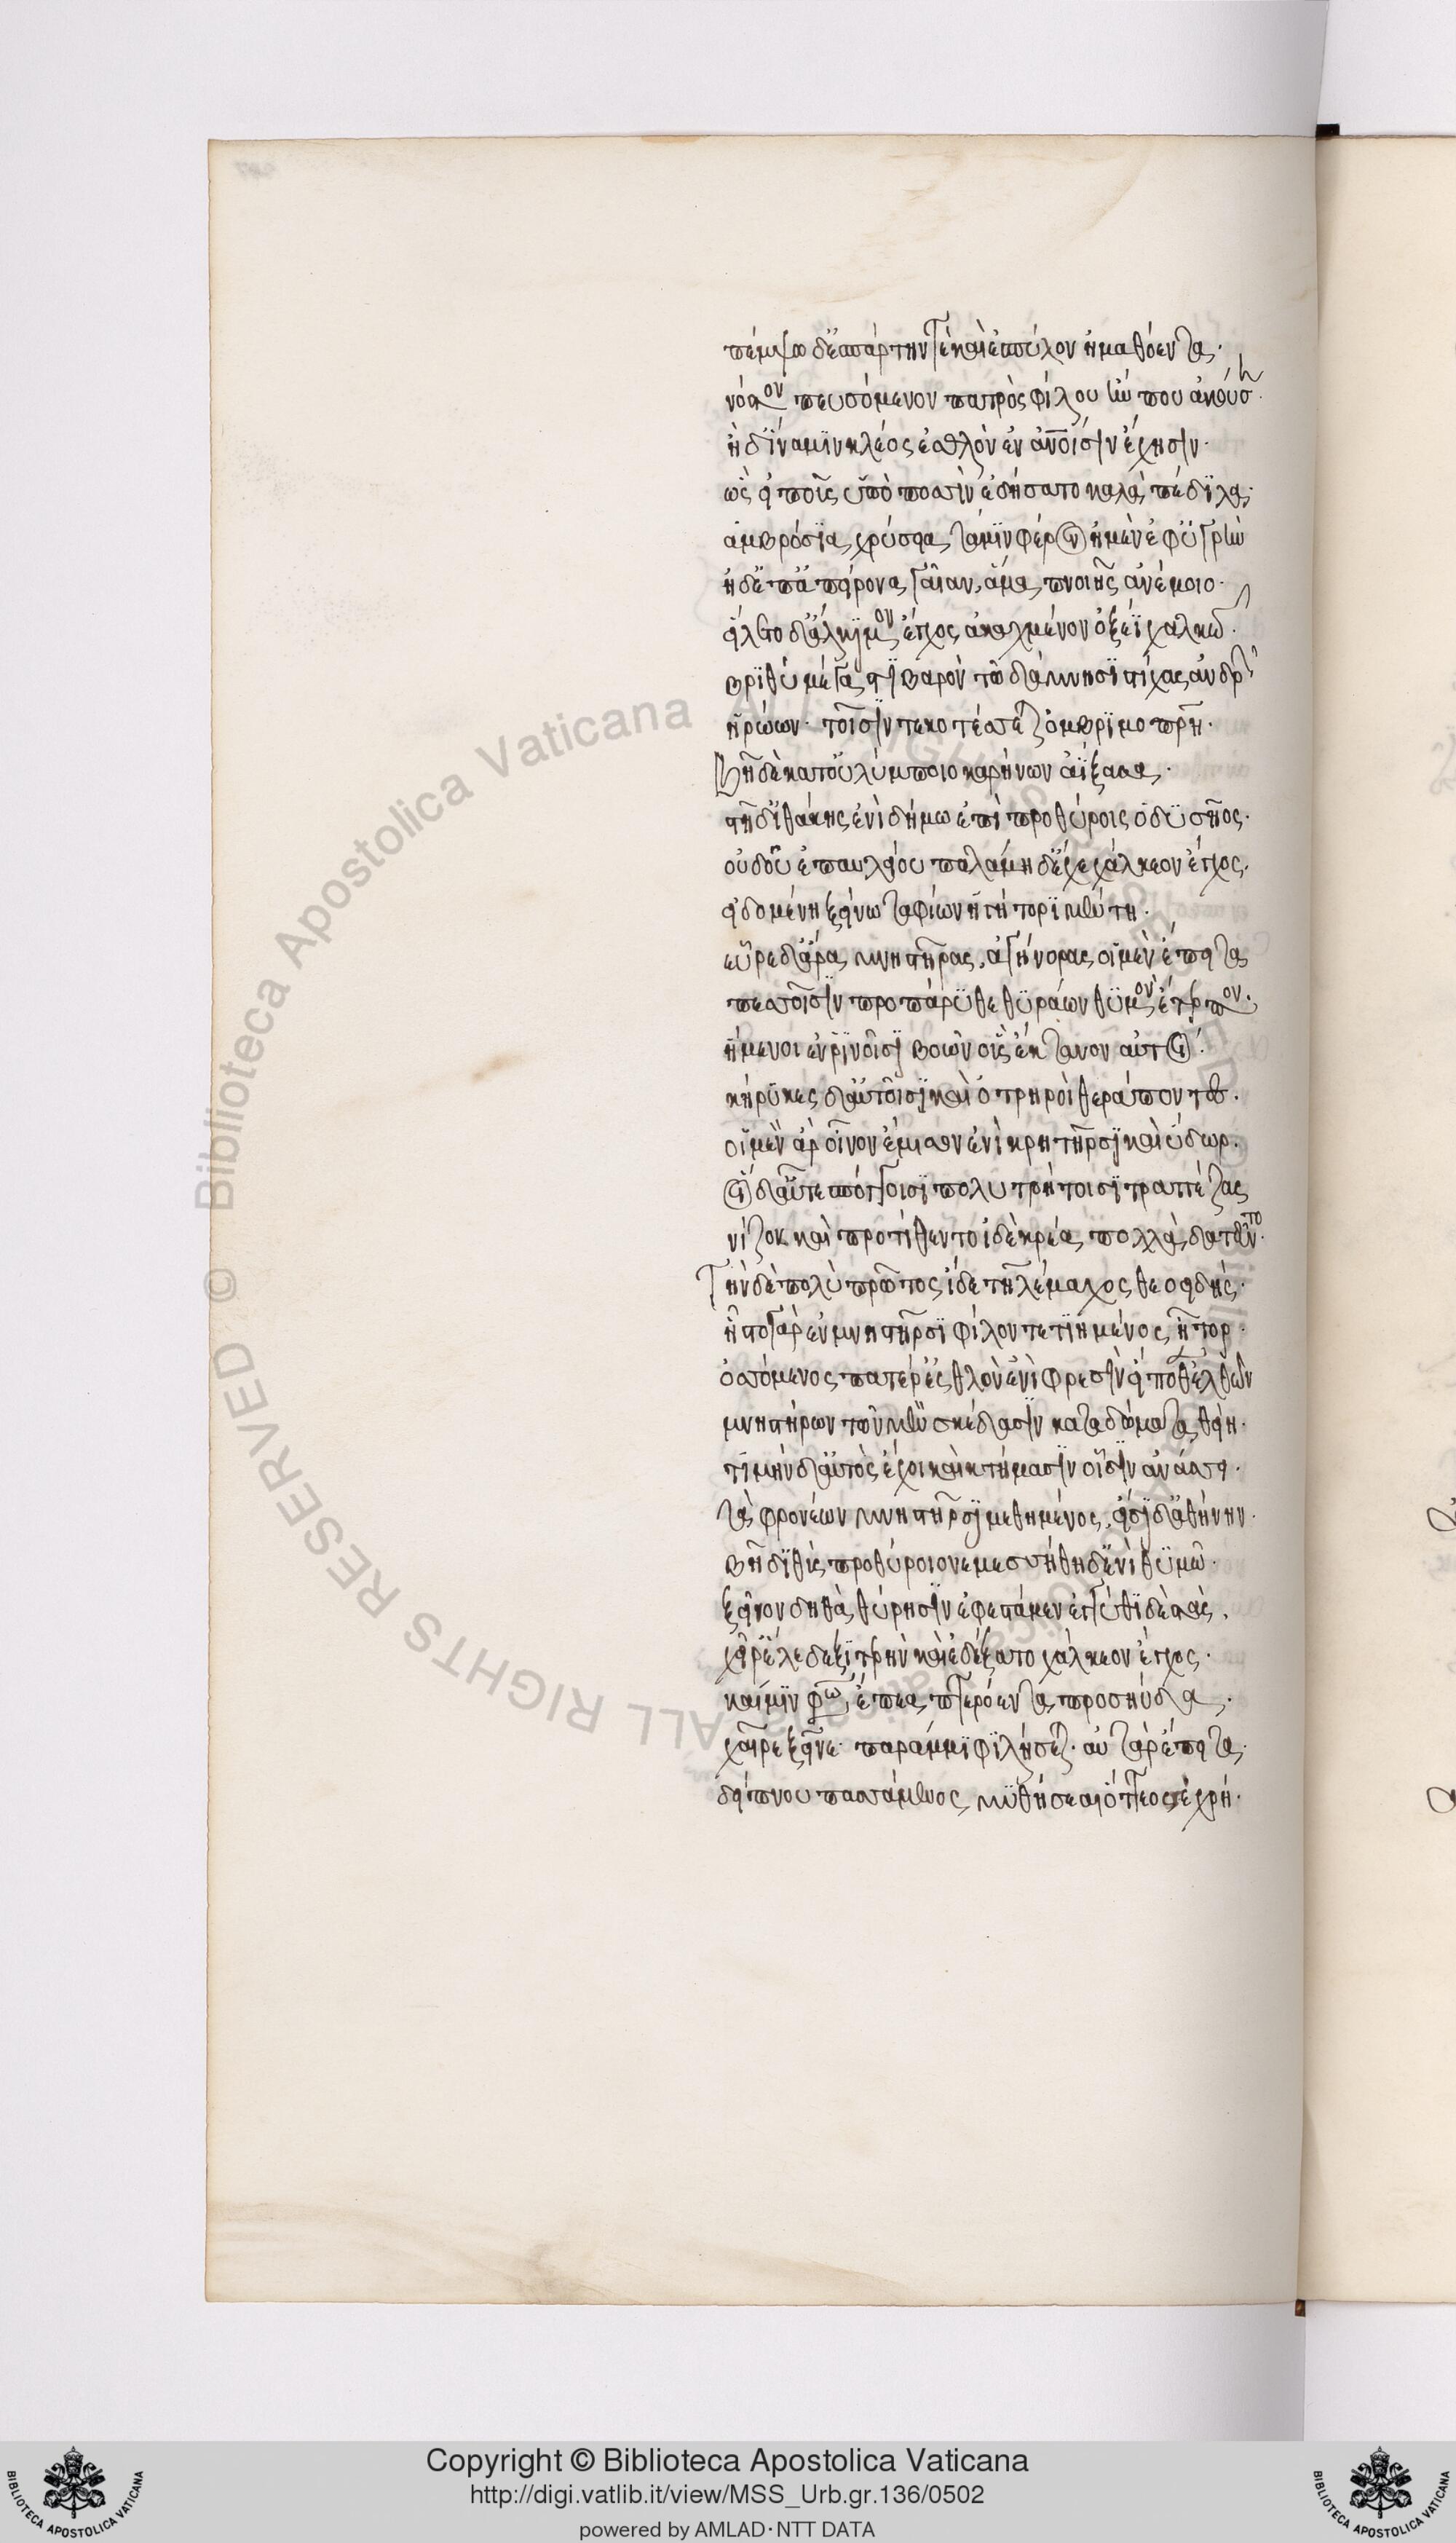 πέμψω δ' ἐς σπάρτην τὲ καὶ ἐς πύλον ἠμαθόεντα·
νόστον πευσόμενον πατρὸς φίλου ἤν που ἀκούσῃ·
ἠδ' ἵνα μιν κλέος ἐσθλὸν ἐν ἀνοῖσιν ἔχησιν·
ὣς εἰποῦσ' ὑπὸ ποσσὶν ἐδήσατο καλὰ πέδιλα·
ἀμβρόσια χρύσεια τά μιν φέρον ἠμὲν ἐφ' ὑγρὴν
ἠδ' ἐπ' ἀπείρονα γαῖαν, ἅμα πνοιῇς ἀνέμοιο·
εἵλετο δ' ἄλκιμον ἔγχος ἀκαχμένον ὀξέϊ χαλκῶ·
βριθὺ μέγα στιβαρὸν τῶ δάμνησι στίχας ἀνδρῶν
ἡρώων· τοῖσίν τε κοτέσσεται ὀμβριμοπάτρη·
βῆ δὲ κατ' οὐλύμποιο καρήνων ἀΐξασα·
στῆ δ' ἰθάκης ἐνὶ δήμω ἐπὶ προθύροις ὀδυσῆος·
οὐδοῦ ἐπ' αυλείου παλάμη δ' ἔχε χάλκεον ἔγχος·
εἰδομένη ξείνω ταφίων ἡγήτορι μέντη·
εὗρε δ' ἄρα μνηστῆρας ἀγήνορας οἱ μὲν ἔπειτα
πεσσοῖσιν προπάροιθε θυράων θυμὸν ἔτερπον·
ἥμενοι ἐν ῥινοῖσι βοῶν οὓς ἔκτανον αὐτοί·
κήρυκες δ' αὐτοῖσι καὶ ὀτρηροὶ θεράποντες·
οἱ μὲν ἂρ οἶνον ἔμισγον ἐνὶ κρητῆρσι καὶ ὕδωρ·
οἱ δ' αὖτε σπόγγοισι πολυτρήτοισι τραπέζας
νίζον καὶ προτίθεντο ἰδὲ κρέα πολλὰ δατεῦντο·
Τὴν δὲ πολὺ πρῶτος ἴδε τηλέμαχος θεοειδής·
ἧστο γὰρ ἐν μνηστῆρσι φίλον τετιημένος ἦτορ·
ὀσσόμενος πατέρ' ἐσθλὸν ἐνὶ φρεσὶν εἴποθεν ἐλθὼν
μνηστήρων τῶν μὲν σκέδασιν κατα δώματα θείη·
τιμὴν δ' αὐτὸς ἔχοι καὶ κτήμασιν οἷσιν ἀνάσσοι·
τὰ φρονέων μνηστῆρσι μεθήμενος εἴσιδ' ἀθήνην·
βῆ δ' ἰθὺς προθύροιο νεμεσσήθη δ' ἐνὶ θυμῶ·
ξεῖνον δηθὰ θύρησιν ἐφεστάμεν ἐγγύθι δὲ στὰς·
χεῖρ' ἕλε δεξιτερὴν καὶ ἐδέξατο χάλκεον ἔγχος·
καί μιν φωνήσας ἔπεα πτερόεντα προσηύδα·
χαῖρε ξεῖνε· παρ' ἄμμι φιλήσεαι· αὐτὰρ ἔπειτα
δείπνου πασσάμενος μυθήσεαι ὅττεό σε χρή·
Copyright © Biblioteca Apostolica Vaticana
http://digi.vatlib.it/view/MSS_Urb.gr.136/0502
powered by AMLAD·NTT DATA